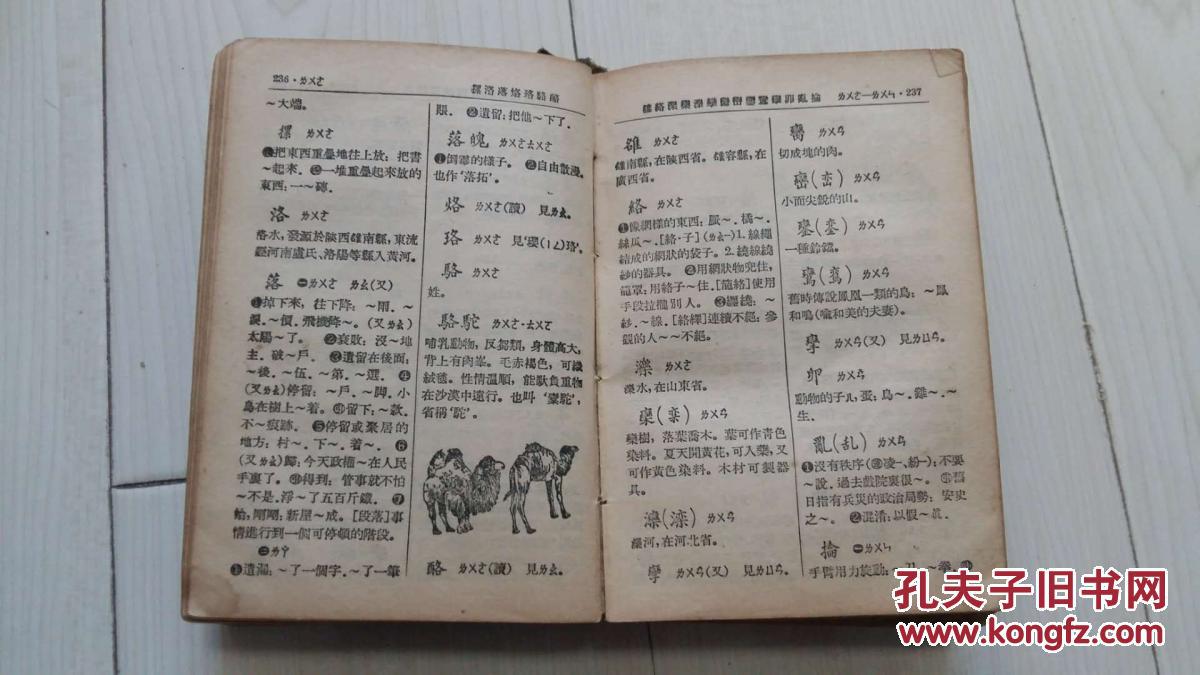 236・ㄌㄨㄛ
摞洛落烙珞駱酪
～大端。
摞 ㄌㄨㄛ
❶把東西重疊地往上放：把書
～起來。❷一堆重疊起來放的
東西：一～磚。
洛 ㄌㄨㄛ
洛水，發源於陝西雒南縣，東流
經河南盧氏、洛陽等縣入黃河。
落 ㊀ㄌㄨㄛ ㄌㄠ(又)
❶掉下來，往下降：～雨．～
價．飛機降～。(又ㄌㄠ)
太陽～了。❷衰敗：沒～地
主．破～戶。❸遺留在後面：
～後．～伍．～第．～選。❹
(又ㄌㄠ)停留：～戶．～脚．小
鳥在樹上～着。㊕留下：～款．
不～痕跡。❺停留或聚居的
地方：村～．下～．着～。❻
(又ㄌㄠ)歸：今天政權～在人民
手裏了。㊕得到：管事就不怕
～不是．淨～了五百斤鐵。❼
始，剛剛：新屋～成。[段落]事
情進行到一個可停頓的階段。
㊁ㄌㄚ
❶遺漏：～了一個字．～了一筆
賬。❷遺留：把他～下了．
落魄 ㄌㄨㄛㄊㄨㄛ
❶倒霉的樣子。❷自由散漫。
也作‘落拓’。
烙 ㄌㄨㄛ(讀) 見ㄌㄠ。
珞 ㄌㄨㄛ 見‘瓔(ㄧㄥ)珞’。
駱 ㄌㄨㄛ
姓。
駱駝 ㄌㄨㄛ・ㄊㄨㄛ
哺乳動物，反芻類，身體高大，
背上有肉峯。毛赤褐色，可織
絨毯。性情溫順，能馱負重物
在沙漠中遠行。也叫‘橐駝’，
省稱‘駝’。
酪 ㄌㄨㄛ(讀) 見ㄌㄠ。
ㄌㄨㄛ—ㄌㄨㄣ・237
雒 ㄌㄨㄛ
雒南縣，在陝西省。雒容縣，在
廣西省。
絡 ㄌㄨㄛ
❶像網樣的東西：脈～．橘～．
絲瓜～．[絡·子](ㄌㄠ—)1.線繩
結成的網狀的袋子。2.繞線繞
紗的器具。❷用網狀物兜住，
籠罩：用絡子～住．[籠絡]使用
手段拉攏別人。❸纏繞：～
紗．～線．[絡繹]連續不絕：參
觀的人～～不絕。
濼 ㄌㄨㄛ
濼水，在山東省。
欒(栾) ㄌㄨㄢ
欒樹，落葉喬木。葉可作青色
染料。夏天開黃花，可入藥，又
可作黃色染料。木材可製器
具。
灤(滦) ㄌㄨㄢ
灤河，在河北省。
孿 ㄌㄨㄢ(又) 見ㄌㄩㄢ。
臠 ㄌㄨㄢ
切成塊的肉。
巒(峦) ㄌㄨㄢ
小而尖銳的山。
鑾(銮) ㄌㄨㄢ
一種鈴鐺。
鸞(鸾) ㄌㄨㄢ
舊時傳說鳳凰一類的鳥：～鳳
和鳴(喻和美的夫妻)。
攣 ㄌㄨㄢ(又) 見ㄌㄩㄢ。
卵 ㄌㄨㄢ
動物的子ㄦ，蛋：鳥～．雞～．～
生．
亂(乱) ㄌㄨㄢ
❶沒有秩序(㊣凌一、紛一)：不要
～說．過去戲院裏很～。㊕舊
日指有兵災的政治局勢：安史
之～。❷混淆：以假～眞．
掄 ㊀ㄌㄨㄣ
手臂用力旋動：～刀．～拳．
孔夫子旧书网
www.kongfz.com